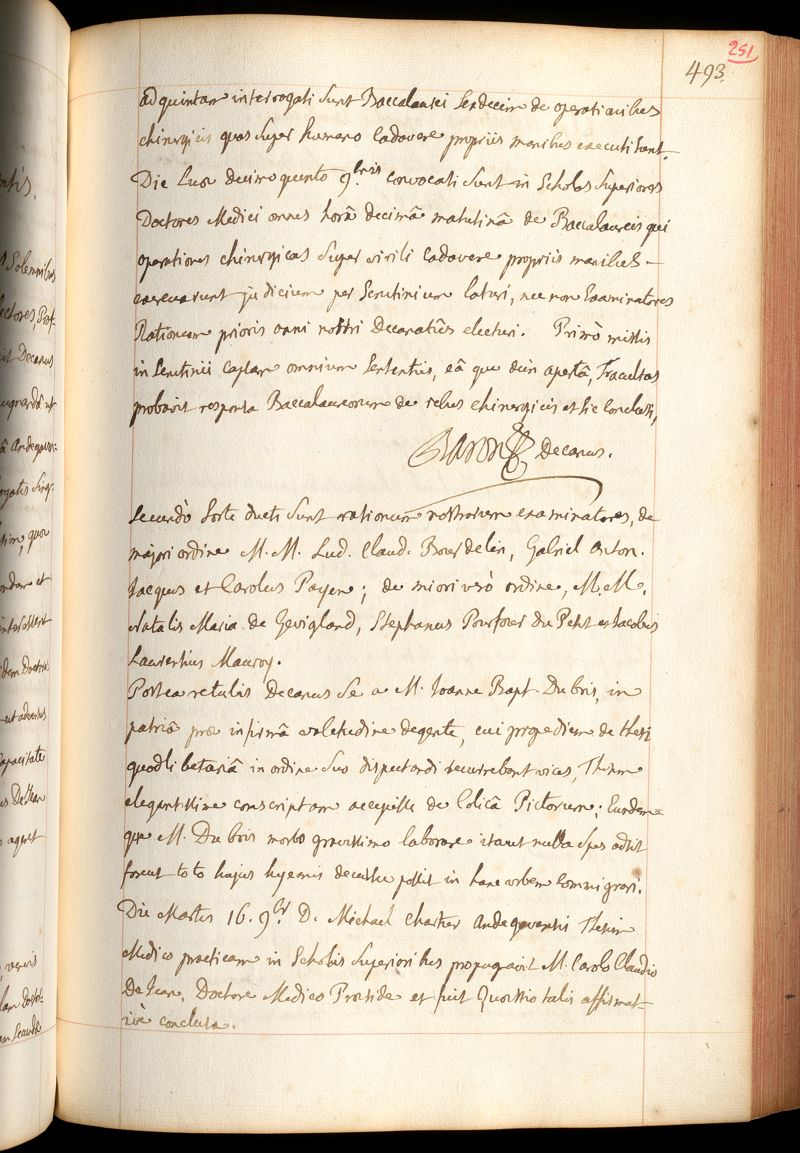 251
493.
ad quintam interrogati sunt Baccalaurei sexdecim de operationibus
chirurgicis quas super humano cadavere propriis manibus executi sunt.
Die Lunæ decimo quinto 9bris convocati sunt in Scholas Superiores
Doctores Medici omnes horâ decimâ matutinâ de Baccalaureis qui
operationes chirurgicas super virili cadavere propriis manibus
judicium per Scrutinium laturi, nec non Examinatores
Rationum prioris anni nostri Decanatûs electuri. Primò missis
in Scrutinii capsam omnium sententiis, eâ que dein apertâ, Facultas
probavit responsa Baccalaureorum de rebus chirurgicis et sic conclusi,
Baron Decanus.
Secundò sorte ducti sunt rationum nostrarum examinatores, de
majori ordine M. M. Lud. Claud. Bourdelin, Gabriel Anton.
Jacques et Carolus Payen; de miori verò ordine, M. M.
Natalis Maria de Gevigland, Stephanus Pourfour du Petit et Jacobus
Laurentius Mauroy.
Postea retulit Decanus se a M. Joanne Bapt. Dubois, in
patriâ præ infirmâ valetudine degente, cui propediem de thesi
quodlibetariâ in ordine suo disputandi recurrebant vices, Thesim
elegantissime conscriptam accepisse de Colicâ Pictorum; Eundem-
que M. Dubois morbo gravissimo laborare itaut nulla spes adsit
forent toto hujus hyemis decursu possit in hanc urbem commigrari.
Die Martis 16. 9bris D. Michael Chartier Andegavensis Thesim
Medico practicam in Scholis Superioribus propugnavit M. Carolo Claudio
De Jean, Doctore Medico Præside et fuit Quæstio talis affirmat-
ivè conclusa.